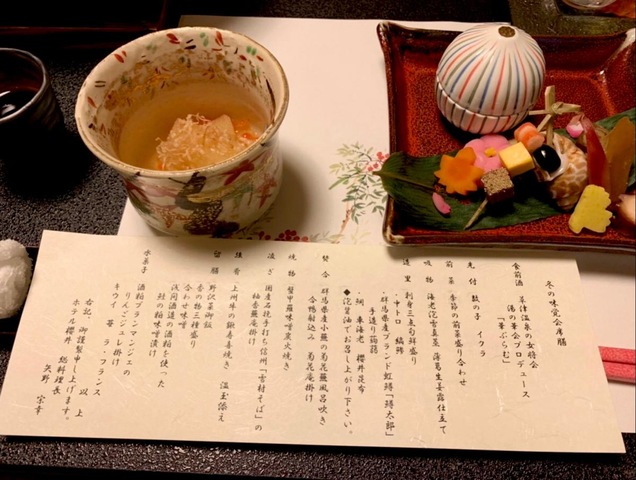 冬の味覚会席膳
食前酒 草津温泉の女将会
湯の華会プロデュース
「華ぷらむ」
先付 数の子 イクラ
前菜 季節の前菜盛り合わせ
吸物 海老沱雪真菜 薄葛生姜露仕立て
造里 刺身三点旬鮮盛り
・中トロ 縞鯵
・群馬県産ブランド虹鱒「鱒太郎」
手造り蒟蒻
・飼 車海老 櫻井昆布
◆泡醤油でお召し上がり下さい。
焚合 群馬県産小蕪の菊花蕪風呂吹き
合鴨射込み 菊花庵掛け
焼物 蟹甲羅味噌炭火焼き
凌ぎ 国産石挽手打ち信州「雪村そば」の
柚香庵掛け
強肴 上州牛の鍬寿喜焼き 温玉添え
留膳 野沢菜御飯
香の物三種盛り
合わせ味噌汁
浅間酒造の酒粕を使った
鮭の粕味噌漬け
水菓子 酒粕ブランマンジェの
りんごジュレ掛け
キウイ 苺 ラ・フランス
以上
右記、御謹製申し上げます。
ホテル櫻井 総料理長
矢野 宗幸